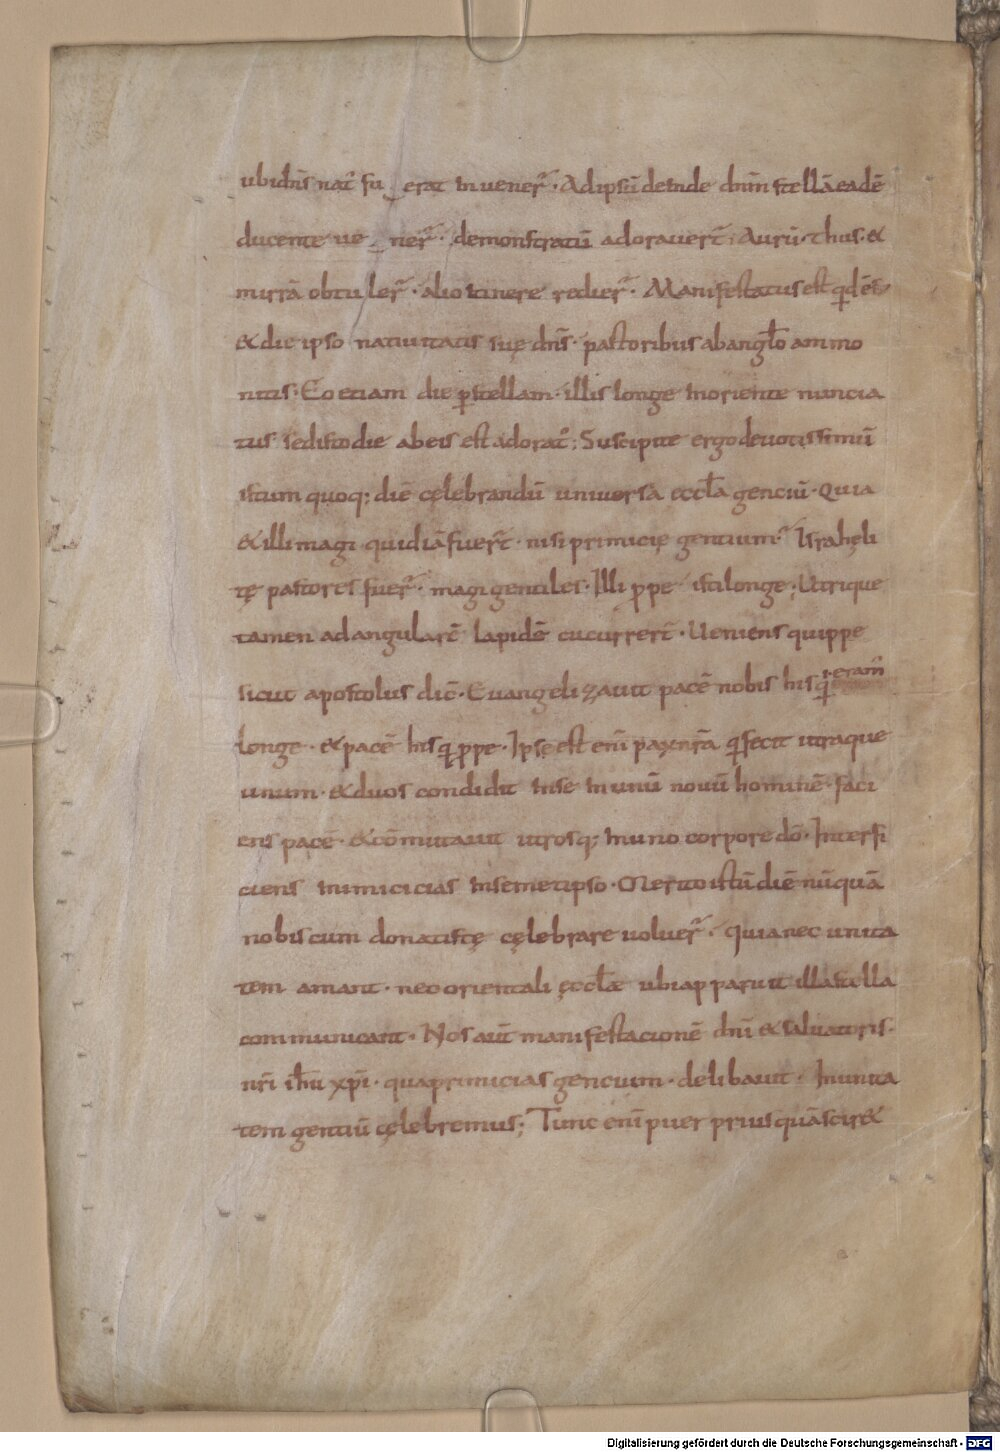 ubi dn̄s nat᷒ fu erat inuener̄. Ad ipsū deinde dnm̄ stellā eadē
ducente ue ner̄. demonstratū adorauert̄. Aurū. thus. &
mirrā obtuler̄. alio itinere redier̄. Manifestatus est qidē
& die ipso natiuitatis suę dn̄s. pastoribus ab angl̄o ammo
nitis. Eo etiam die p stellam illis longe in oriente nuncia
tus. sed isto die ab eis est adorat᷒; Suscipite ergo deuotissimū
istum quoq; diē cęlebrandū uniuersa eccl̄a genciū. Quia
& illi magi quid iā fuert̄. nisi primicię gentium. Israheli
tę pastores fuer̄. magi gentiles. Illi ppe isti longe; Utrique
tamen ad angularē lapidē cucurrert̄. Ueniens quippe
sicut apostolus dic̄. Euangelizauit pacē nobis his qi eram᷒
longe. & pacē his qi ppe. Ipse est enī pax nr̄a qi fecit utraque
unum. & duos condidit in se in unū nouū hominē. faci
ens pacē. & cōmutauit utrosq; in uno corpore dō. Interfi
ciens inimicicias in semetipso. Merito istū diē nūquā
nobiscum donatistę cęlebrare uoluer̄. quia nec unita
tem amant. nec orientali ęccl̄ae ubi apparuit illa stella
communicant. Nos aūt manifestacionē dnī & saluatoris.
nr̄i ih̄u xp̄i. qua primicias gencium. delibauit. In unita
tem gentiū cęlebremus; Tunc enī puer priusquā scir&